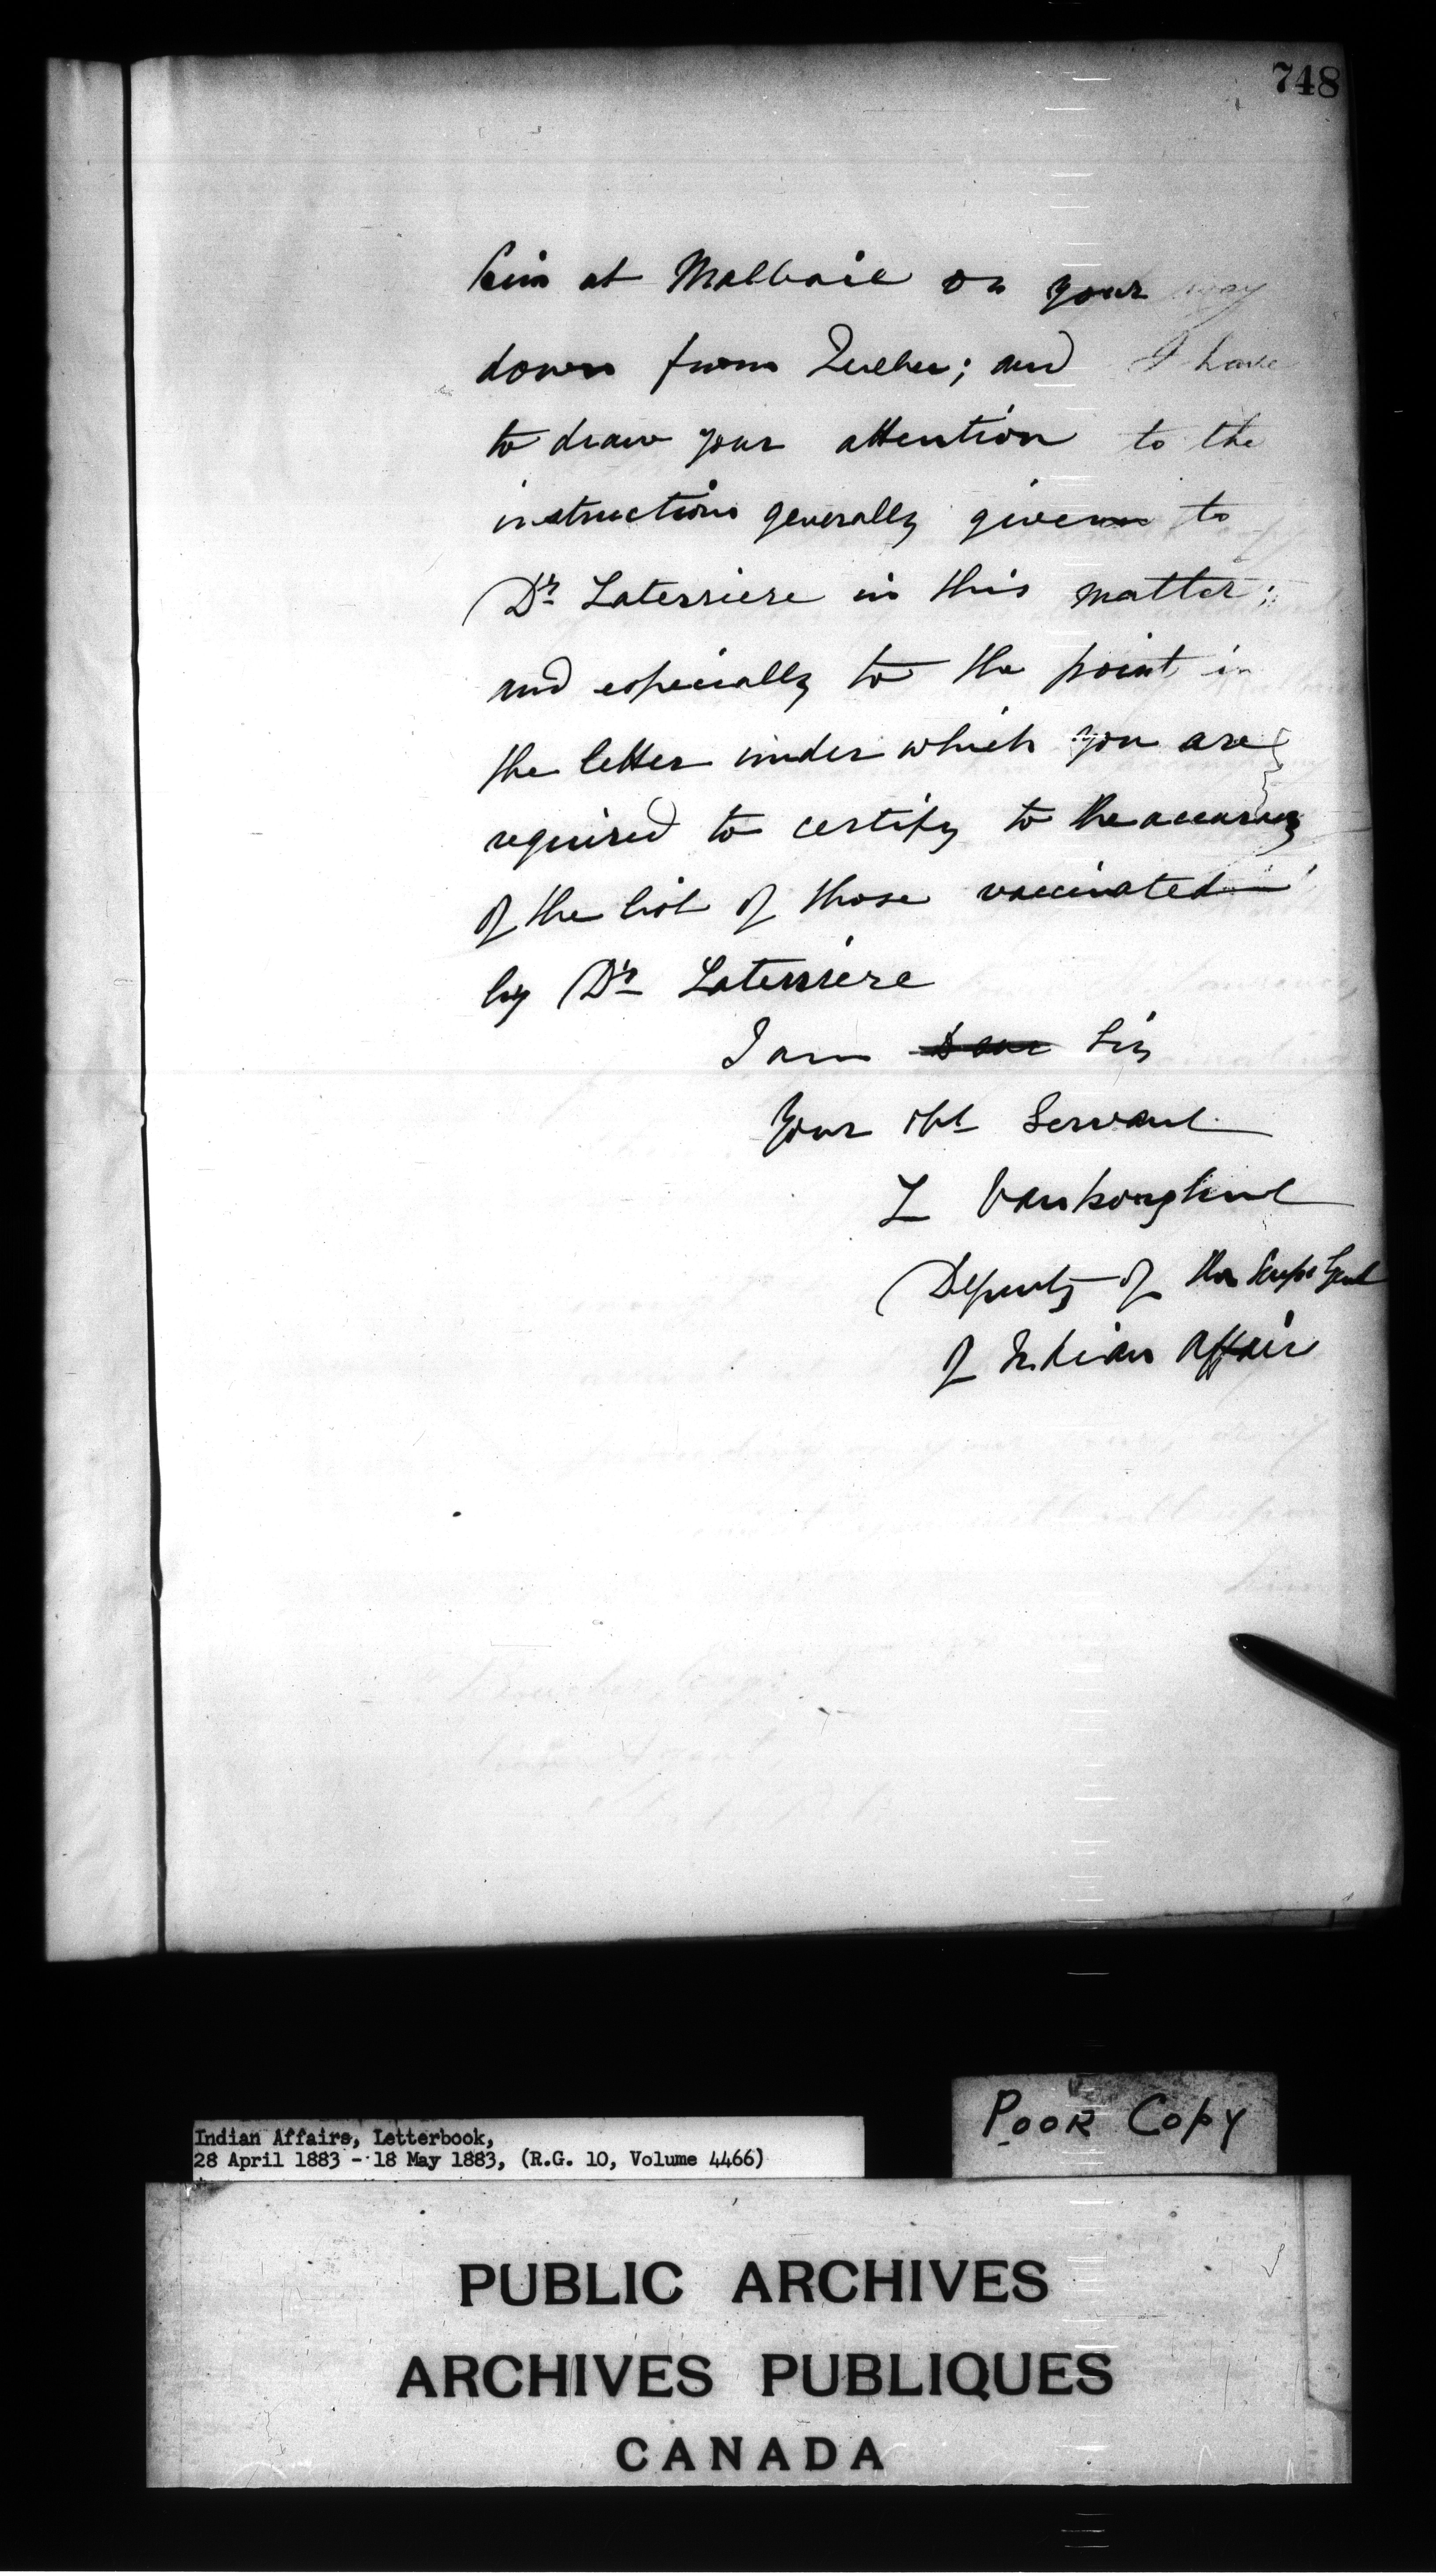 748
him at Malbaie on your way
down from Quebec; and I have
to draw your attention to the
instructions generally given to
Dr. Laterriere in this matter;
and especially to the point in
the letter under which you are
required to certify to the accuracy
of the list of those vaccinated
by Dr. Laterriere
I am Dear Sir
Your obt Servant
L Vankoughnet
Deputy of the Supt Genl
of Indian Affairs
him
Poor Copy
Indian Affairs, Letterbook,
28 April 1883 - 18 May 1883, (R.G. 10, Volume 4466)
PUBLIC ARCHIVES
ARCHIVES PUBLIQUES
CANADA